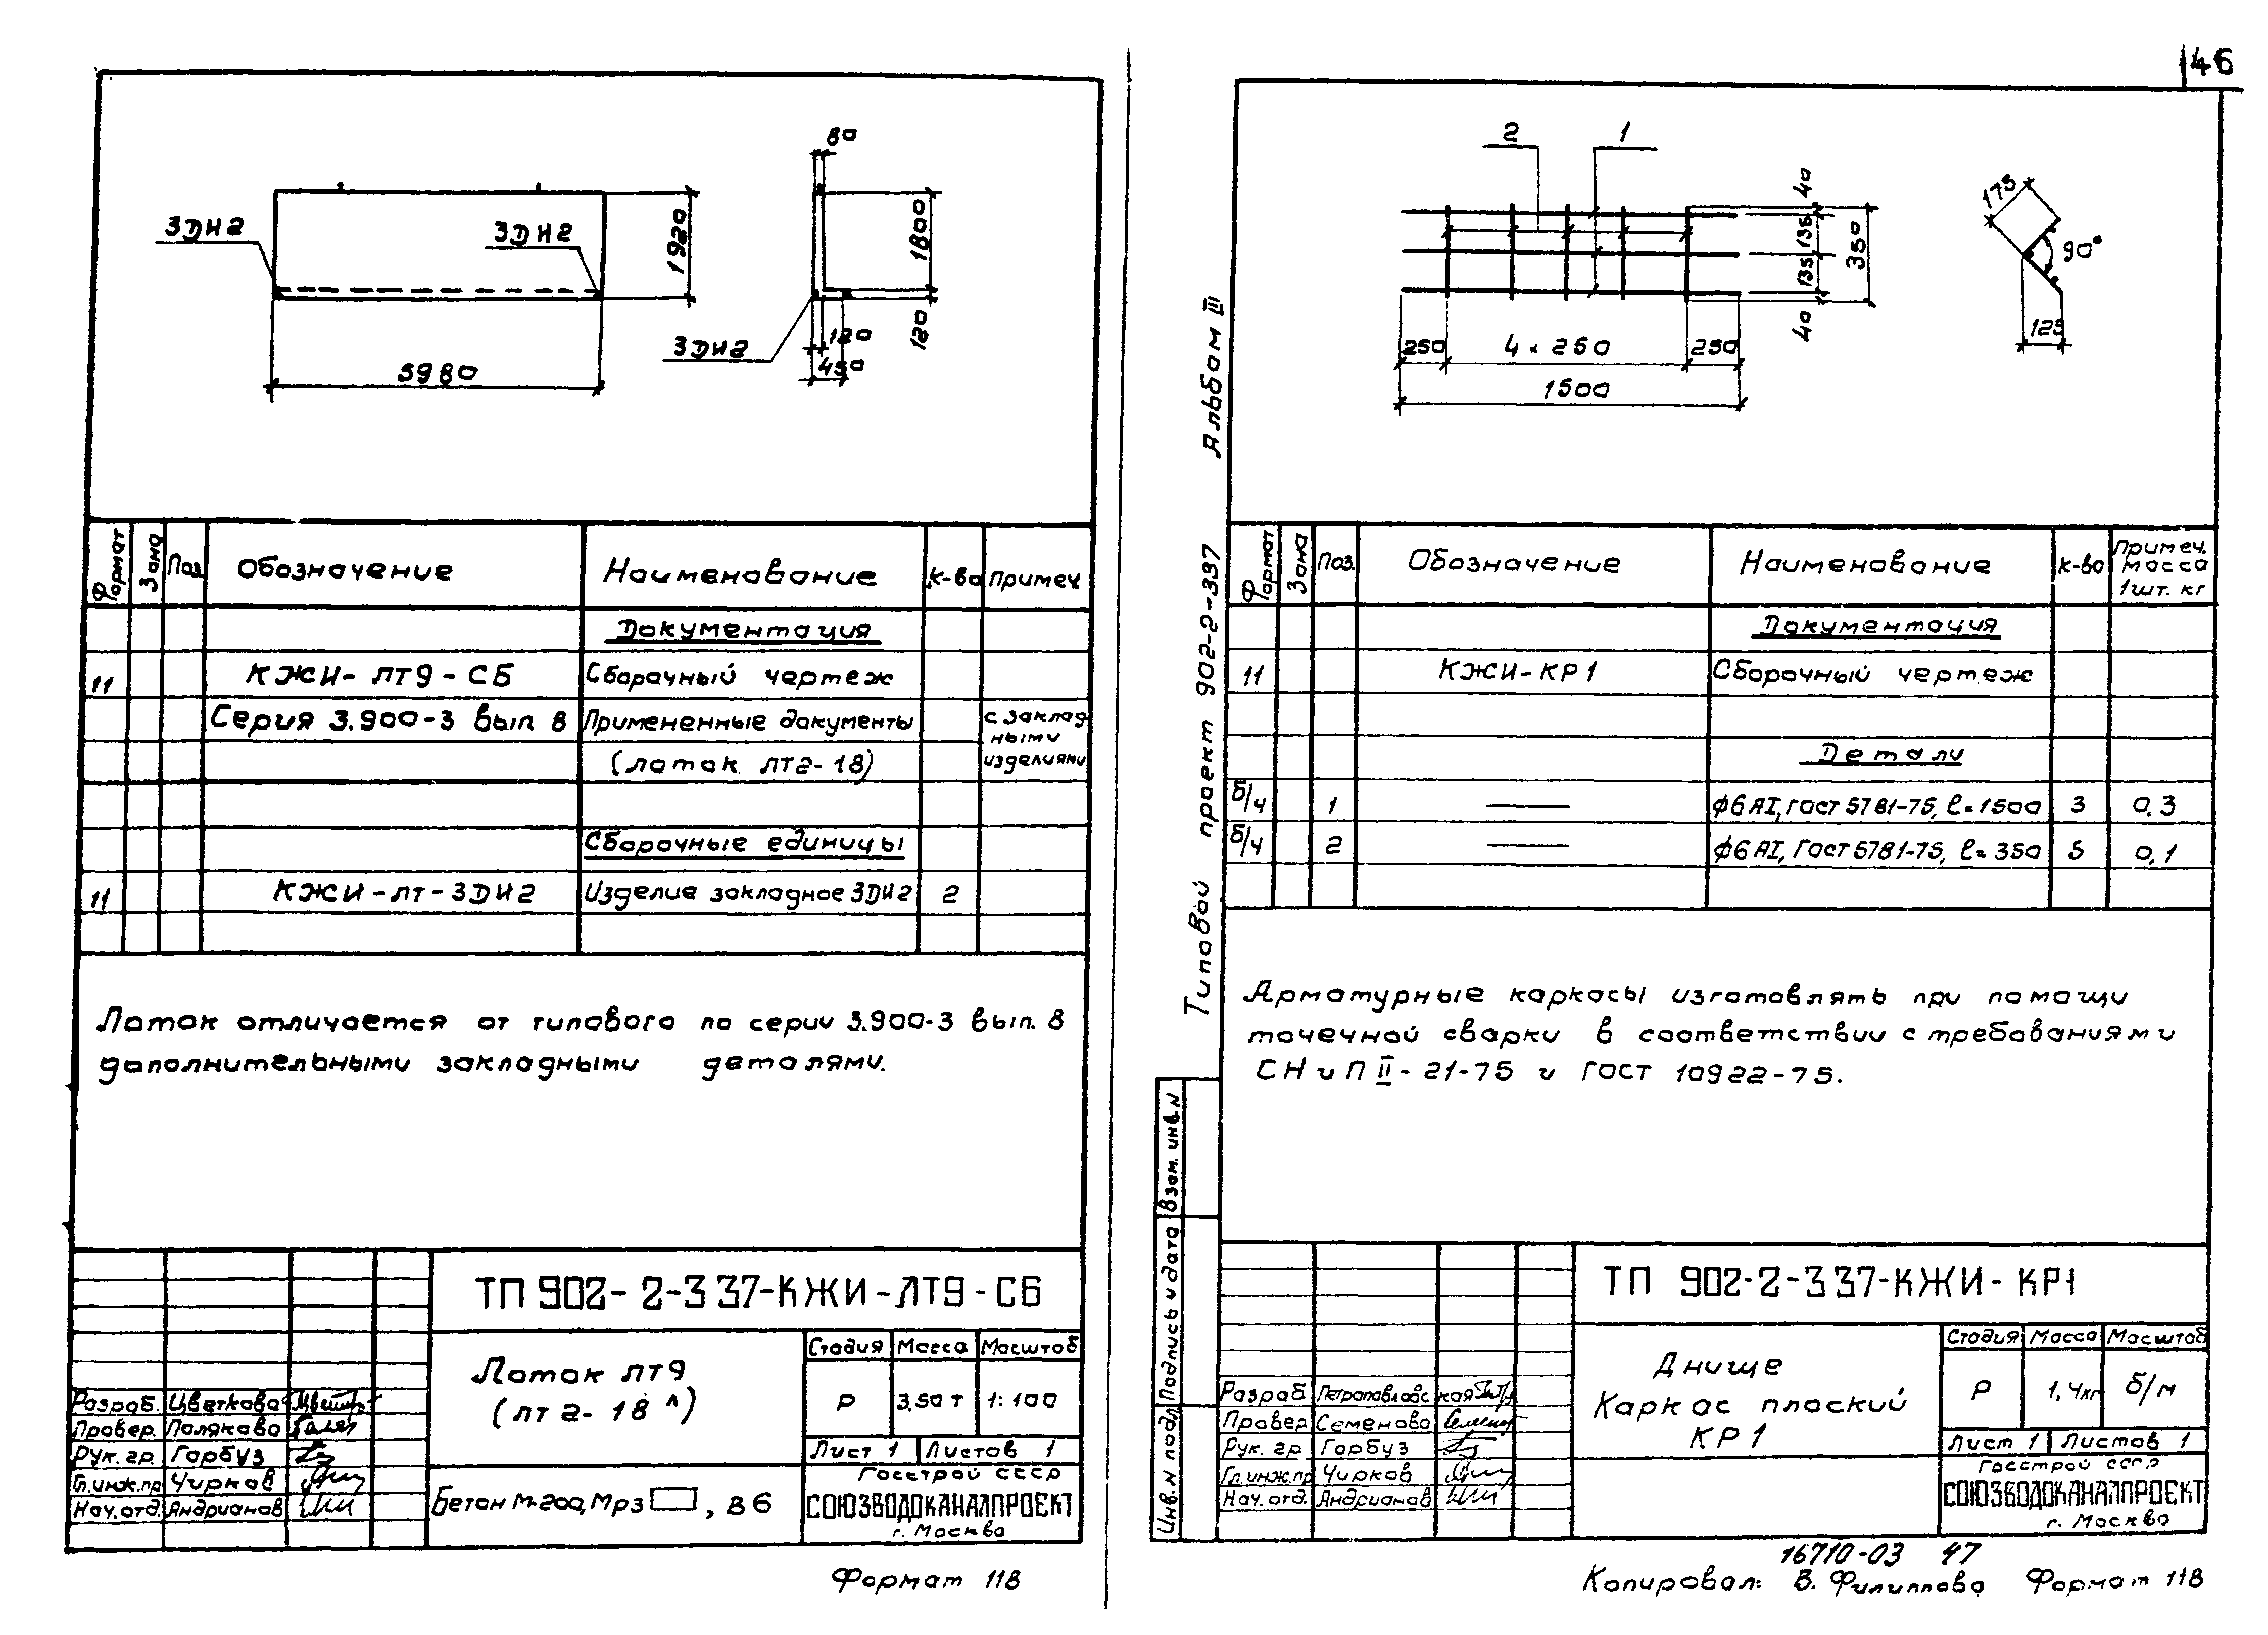 46
80
3ДИ2
3ДИ2
1920
1800
120
120
450
3ДИ2
5980
Формат
Зона
Поз.
Обозначение
Наименование
К-во
Примеч.
Документация
11 КЖИ-ЛТ9-СБ Сборочный чертеж
Серия 3.900-3 вып. 8 Примененные документы
(лоток ЛТ2-18)
с заклад
ными
изделиями
Сборочные единицы
11 КЖИ-ЛТ-3ДИ2 Изделие закладное 3ДИ2 2
Лоток отличается от типового по серии 3.900-3 вып. 8
дополнительными закладными деталями.
ТП 902-2-337-КЖИ-ЛТ9-СБ
Лоток ЛТ9
(ЛТ2-18 л)
Стадия Масса Масштаб
Р 3,50 т 1:100
Лист 1 Листов 1
Разраб. Цветкова
Провер. Полякова
Рук. гр. Горбуз
Гл.инж.пр Чирков
Нач. отд. Андрианов
Бетон М-200, Мрз , В6
Госстрой СССР
СОЮЗВОДОКАНАЛПРОЕКТ
г. Москва
Формат 11В
Типовой проект 902-2-337 Альбом III
2
1
40
135
135
40
350
250
4×250
250
1500
175
90°
125
Формат
Зона
Поз.
Обозначение
Наименование
К-во
Примеч.
масса
1шт. кг
Документация
11 КЖИ-КР1 Сборочный чертеж
Детали
б/ч 1 —— ф6АI, ГОСТ 5781-75, ℓ=1500 3 0,3
б/ч 2 —— ф6АI, ГОСТ 5781-75, ℓ=350 5 0,1
Арматурные каркасы изготовлять при помощи
точечной сварки в соответствии с требованиями
СНиП II-21-75 и ГОСТ 10922-75.
Взам. инв. N
Подпись и дата
Инв. N подл
ТП 902-2-337-КЖИ-КР1
Днище
Каркас плоский
КР1
Стадия Масса Масштаб
Р 1,4кг б/м
Лист 1 Листов 1
Разраб. Петропавловская
Провер Семенова
Рук. гр Горбуз
Гл.инж.пр Чирков
Нач. отд. Андрианов
Госстрой СССР
СОЮЗВОДОКАНАЛПРОЕКТ
г. Москва
16710-03 47
Копировал: В. Филиппова Формат 11В